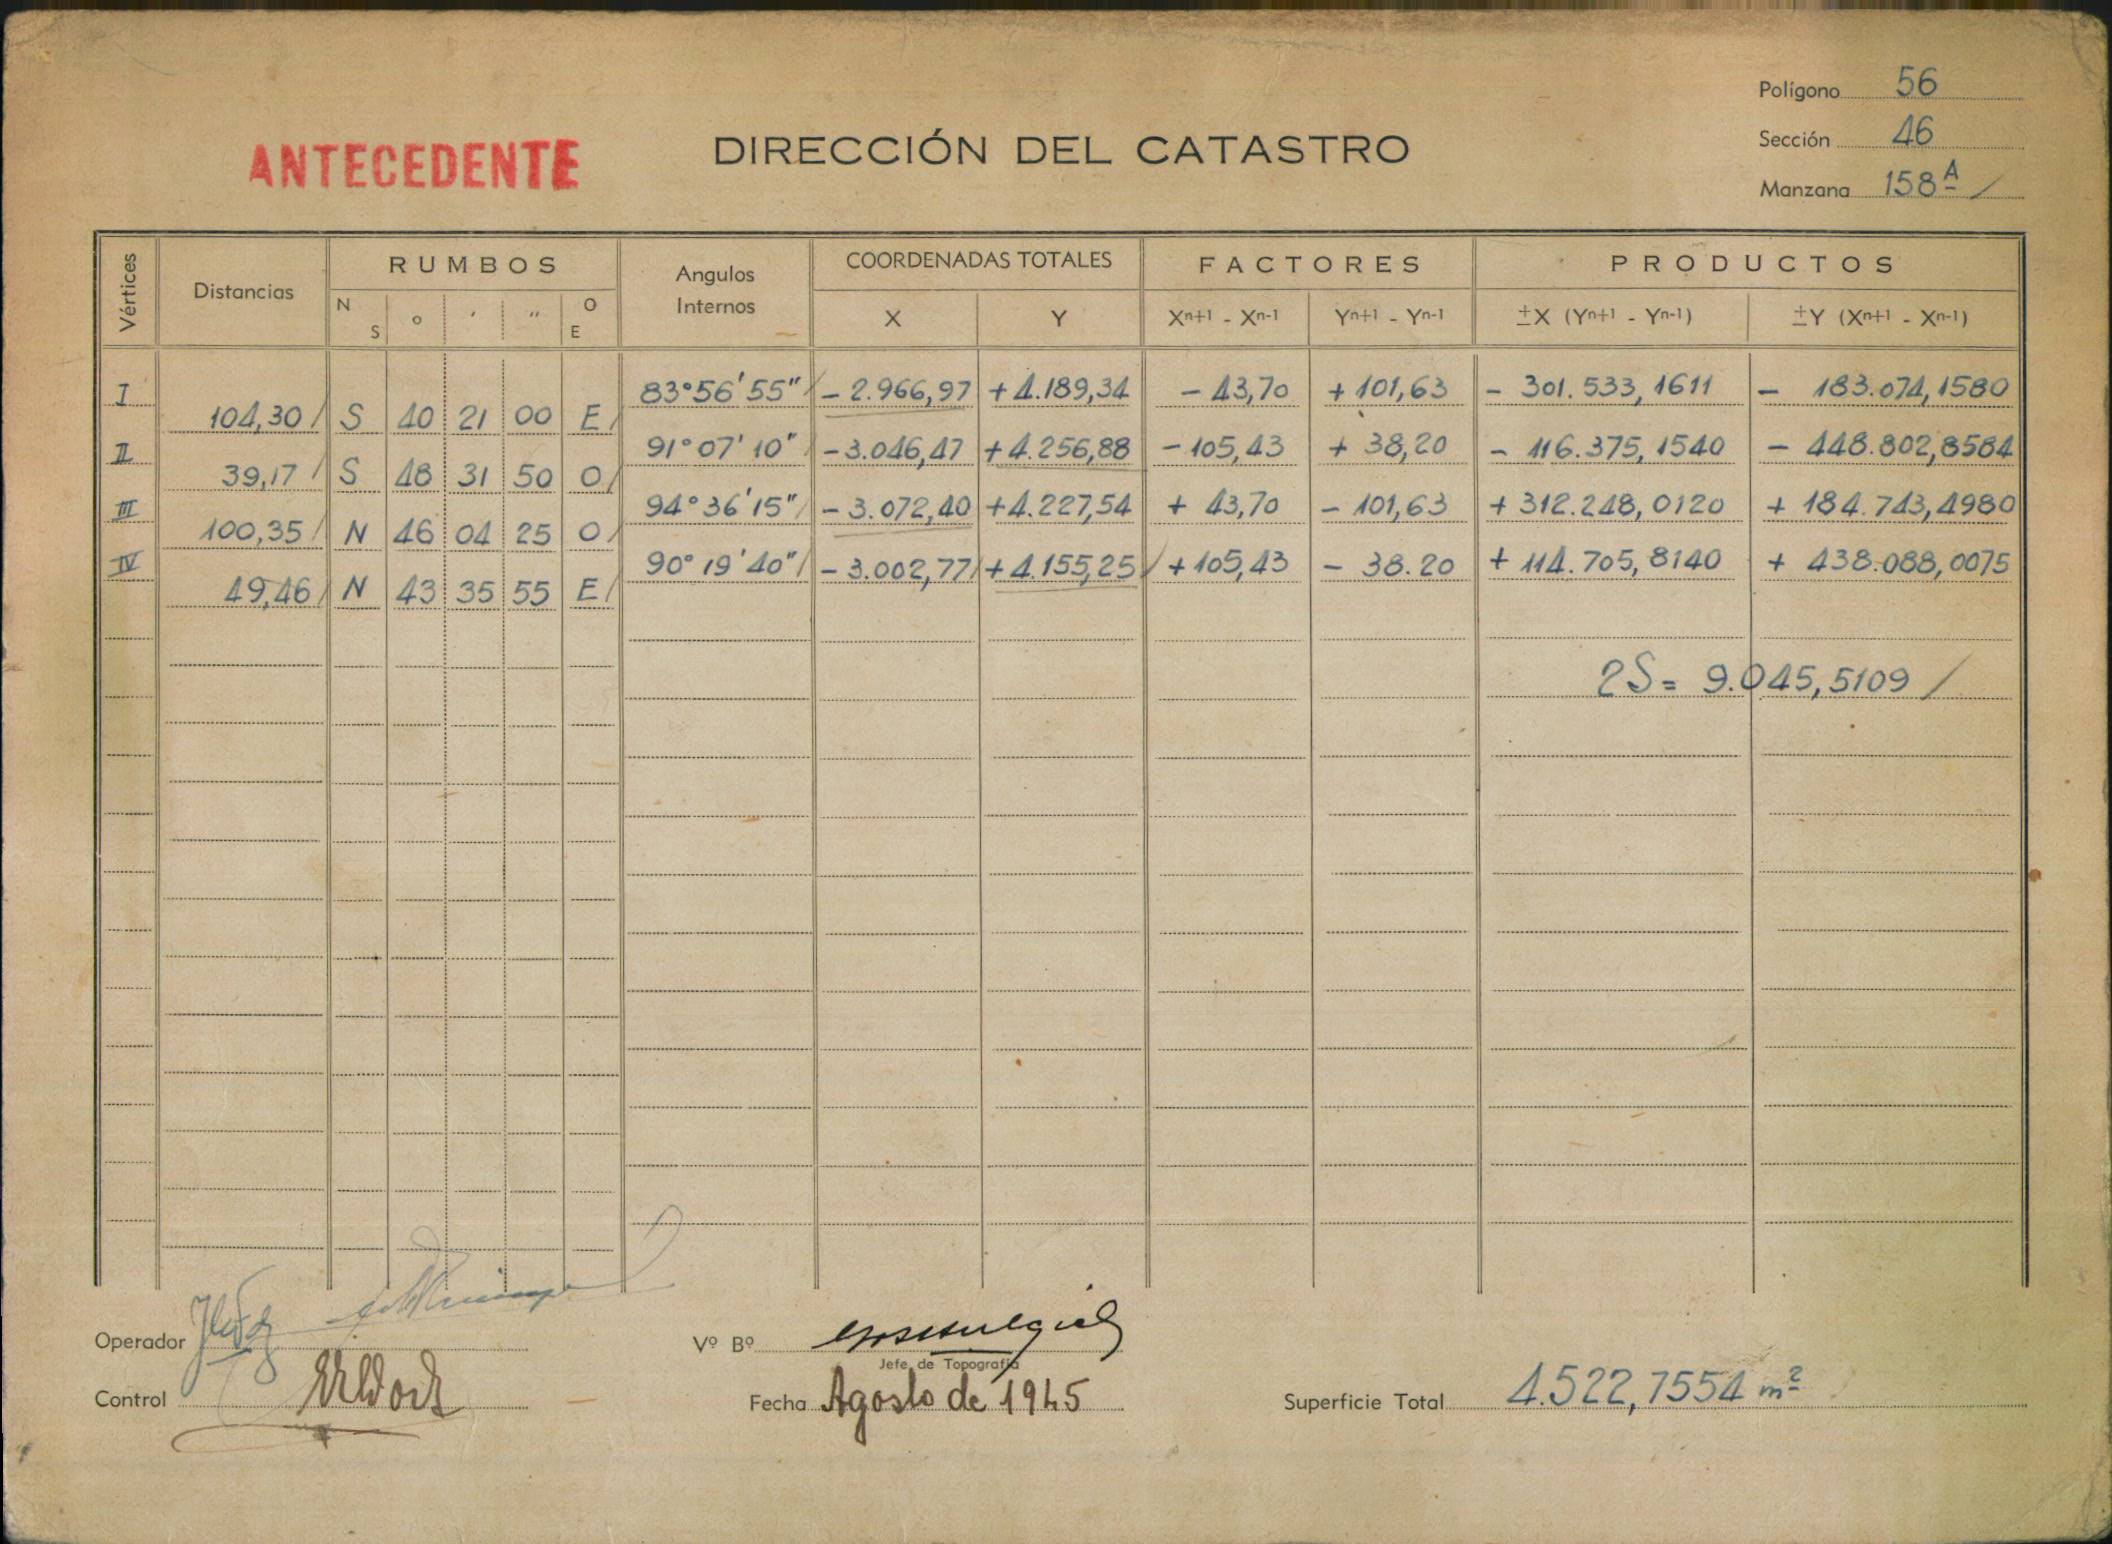 Polígono 56
ANTECEDENTE
DIRECCIÓN DEL CATASTRO
Sección 46
Manzana 158 A
Vértices Distancias RUMBOS Angulos Internos COORDENADAS TOTALES FACTORES PRODUCTOS
N S ° ' " O E X Y Xn+1 - Xn-1 Yn+1 - Yn-1 ±X (Yn+1 - Yn-1) ±Y (Xn+1 - Xn-1)
I 83°56'55" - 2.966,97 + 4.189,34 - 43,70 + 101,63 - 301.533,1611 - 183.074,1580
104,30 S 40 21 00 E
II 91°07'10" - 3.046,47 + 4.256,88 - 105,43 + 38,20 - 116.375,1540 - 448.802,8584
39,17 S 48 31 50 O
III 94°36'15" - 3.072,40 + 4.227,54 + 43,70 - 101,63 + 312.248,0120 + 184.743,4980
100,35 N 46 04 25 O
IV 90°19'40" - 3.002,77 + 4.155,25 + 105,43 - 38.20 + 114.705,8140 + 438.088,0075
49,46 N 43 35 55 E
2S = 9.045,5109
Operador
Vº Bº
Jefe de Topografía
Control
Fecha Agosto de 1945
Superficie Total 4.522,7554 m²